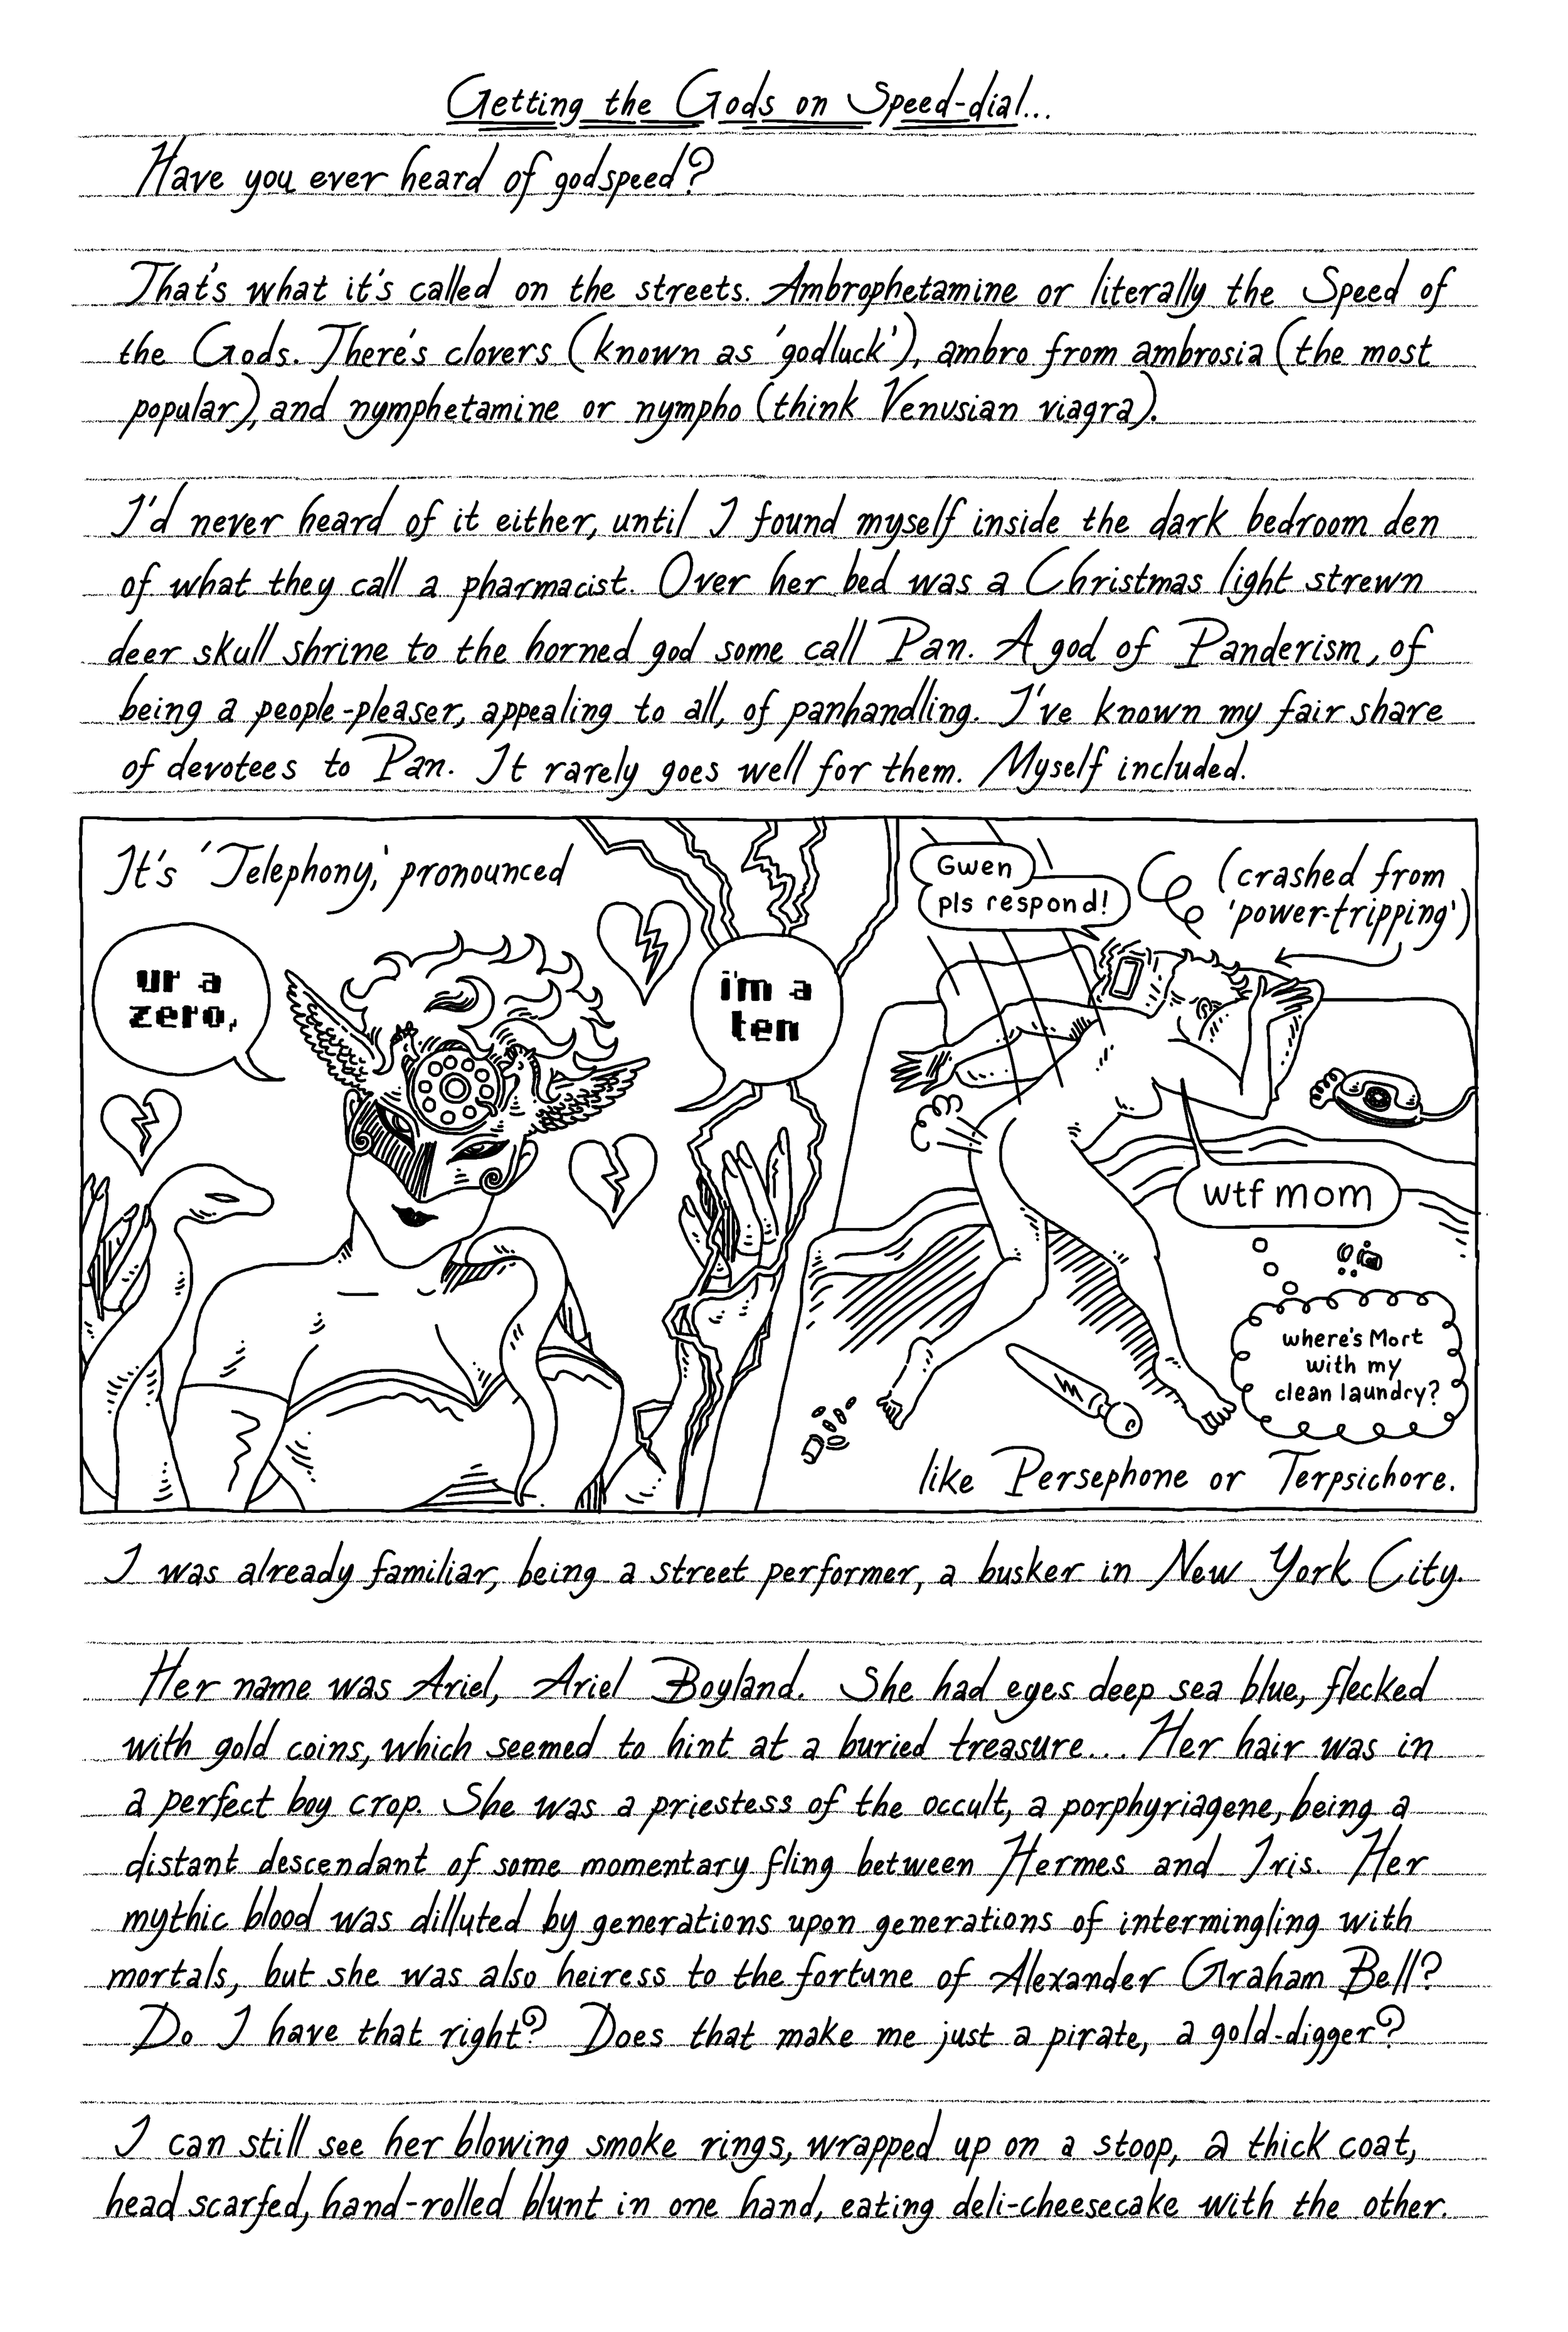 Getting the Gods on Speed-dial...
Have you ever heard of godspeed?
That's what it's called on the streets. Ambrophetamine or literally the Speed of
the Gods. There's clovers (known as 'godluck'), ambro from ambrosia (the most
popular), and nymphetamine or nympho (think Venusian viagra).
I'd never heard of it either, until I found myself inside the dark bedroom den
of what they call a pharmacist. Over her bed was a Christmas light strewn
deer skull shrine to the horned god some call Pan. A god of Panderism, of
being a people-pleaser, appealing to all, of panhandling. I've known my fair share
of devotees to Pan. It rarely goes well for them. Myself included.
It's 'Telephony,' pronounced
ur a
zero,
i'm a
ten
Gwen
pls respond!
(crashed from
'power-tripping')
wtf mom
where's Mort
with my
clean laundry?
like Persephone or Terpsichore.
I was already familiar, being a street performer, a busker in New York City.
Her name was Ariel, Ariel Boyland. She had eyes deep sea blue, flecked
with gold coins, which seemed to hint at a buried treasure... Her hair was in
a perfect boy crop. She was a priestess of the occult, a porphyriagene, being a
distant descendant of some momentary fling between Hermes and Iris. Her
mythic blood was dilluted by generations upon generations of intermingling with
mortals, but she was also heiress to the fortune of Alexander Graham Bell?
Do I have that right? Does that make me just a pirate, a gold-digger?
I can still see her blowing smoke rings, wrapped up on a stoop, a thick coat,
head scarfed, hand-rolled blunt in one hand, eating deli-cheesecake with the other.